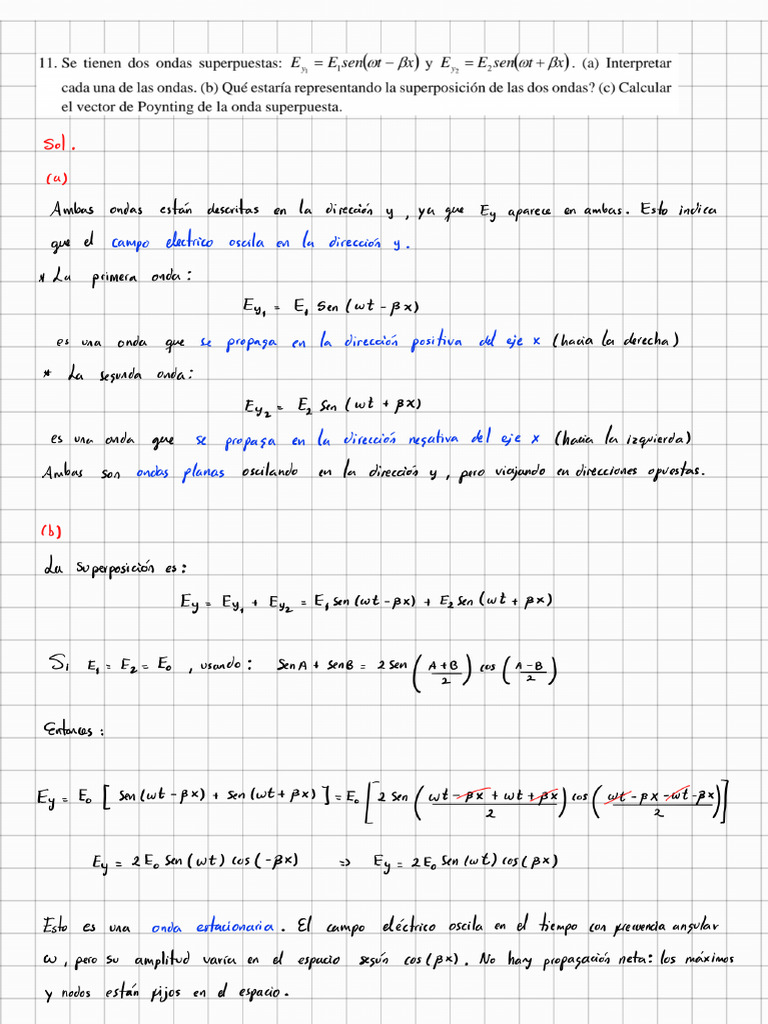 11. Se tienen dos ondas superpuestas: E_{y_1} = E_1 sen(ωt − βx) y E_{y_2} = E_2 sen(ωt + βx). (a) Interpretar
cada una de las ondas. (b) Qué estaría representando la superposición de las dos ondas? (c) Calcular
el vector de Poynting de la onda superpuesta.
Sol.
(a)
Ambas ondas están descritas en la dirección y, ya que Ey aparece en ambas. Esto indica
que el campo electrico oscila en la dirección y.
* La primera onda:
E_{y_1} = E_1 Sen (ωt − βx)
es una onda que se propaga en la dirección positiva del eje x (hacia la derecha)
* La segunda onda:
E_{y_2} = E_2 Sen (ωt + βx)
es una onda que se propaga en la dirección negativa del eje x (hacia la izquierda)
Ambas son ondas planas oscilando en la dirección y, pero viajando en direcciones opuestas.
(b)
La superposición es:
E_y = E_{y_1} + E_{y_2} = E_1 Sen (ωt − βx) + E_2 Sen (ωt + βx)
Si E_1 = E_2 = E_0, usando: Sen A + Sen B = 2 Sen ((A+B)/2) cos ((A−B)/2)
Entonces:
E_y = E_0 [ Sen (ωt − βx) + Sen (ωt + βx) ] = E_0 [ 2 Sen ((ωt − βx + ωt + βx)/2) cos ((ωt − βx − ωt − βx)/2) ]
E_y = 2 E_0 Sen (ωt) cos (−βx) => E_y = 2 E_0 Sen (ωt) cos (βx)
Esto es una onda estacionaria. El campo eléctrico oscila en el tiempo con frecuencia angular
ω, pero su amplitud varía en el espacio según cos (βx). No hay propagación neta: los máximos
y nodos están fijos en el espacio.